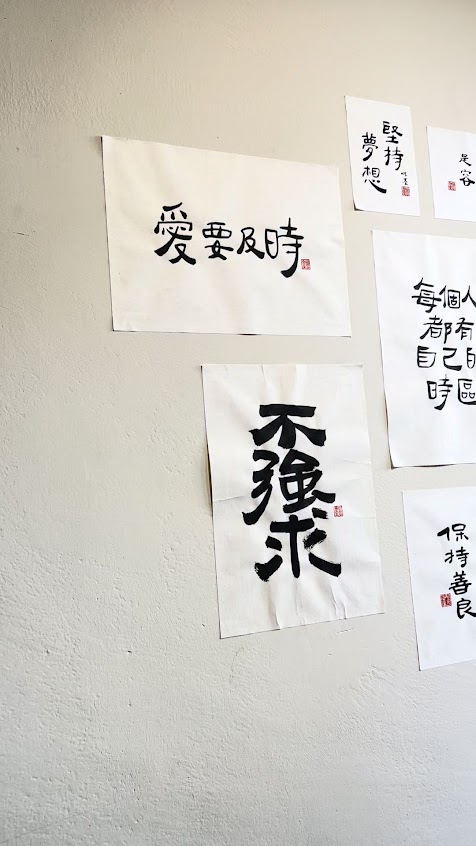 愛要及時
不強求
堅持
夢想
足
容
每個人
都有
自己的
時區
保持善良